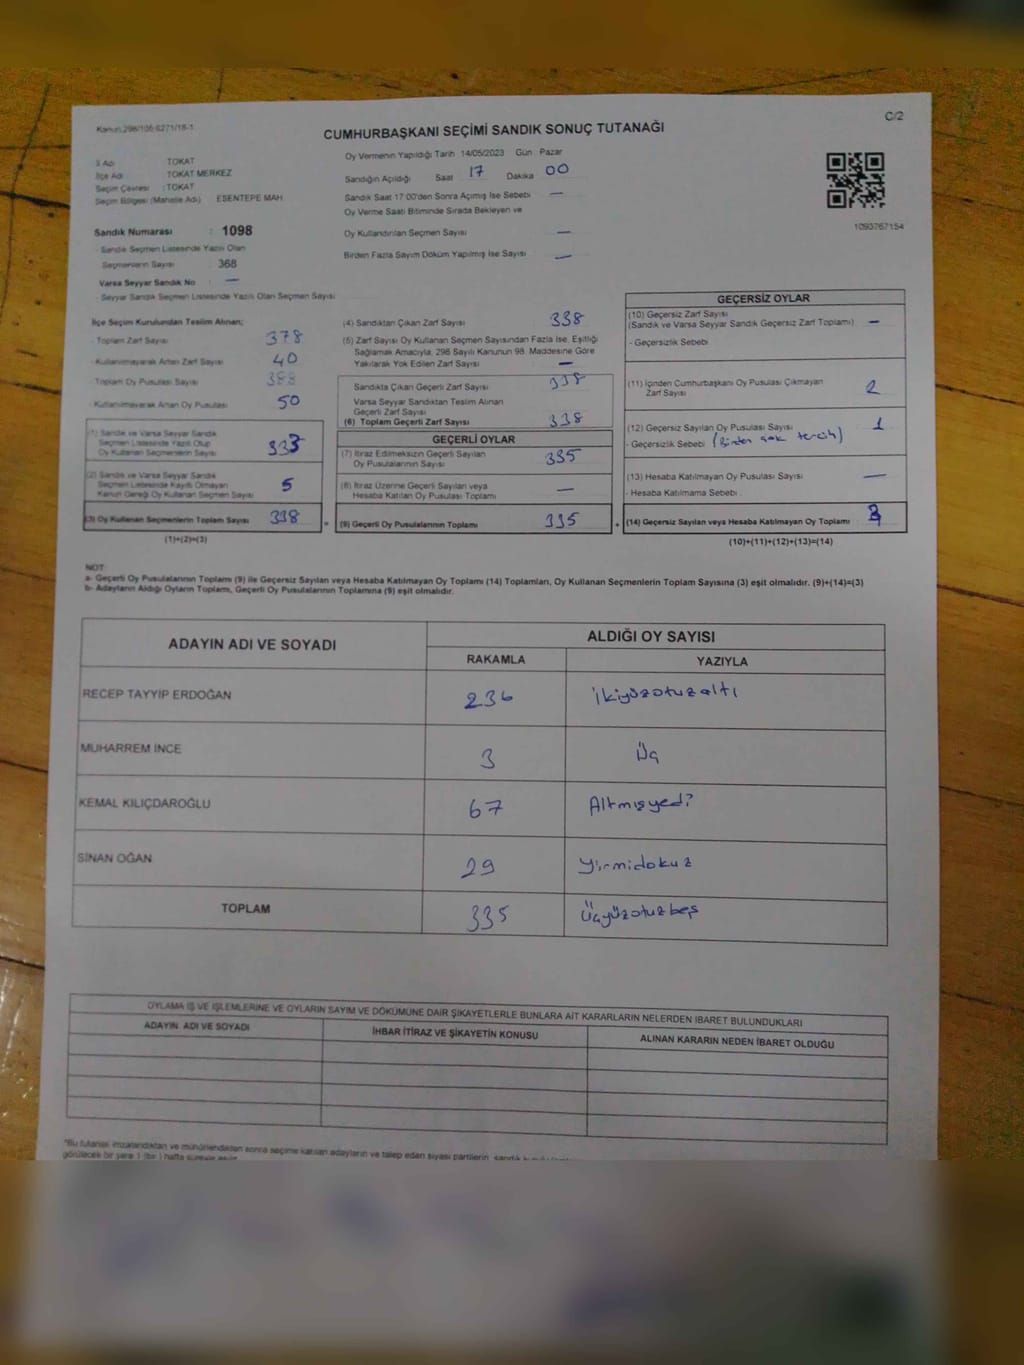 Kanun:298/105;6271/18-1
C/2
CUMHURBAŞKANI SEÇİMİ SANDIK SONUÇ TUTANAĞI
İl Adı TOKAT
İlçe Adı TOKAT MERKEZ
Seçim Çevresi : TOKAT
Seçim Bölgesi (Mahalle Adı) ESENTEPE MAH
Sandık Numarası : 1098
- Sandık Seçmen Listesinde Yazılı Olan
Seçmenlerin Sayısı : 368
Varsa Seyyar Sandık No : —
- Seyyar Sandık Seçmen Listesinde Yazılı Olan Seçmen Sayısı
Oy Vermenin Yapıldığı Tarih :14/05/2023 Gün : Pazar
Sandığın Açıldığı Saat 17 Dakika 00
Sandık Saat 17.00'den Sonra Açılmış İse Sebebi —
Oy Verme Saati Bitiminde Sırada Bekleyen ve
Oy Kullandırılan Seçmen Sayısı —
Birden Fazla Sayım Döküm Yapılmış İse Sayısı —
1093767154
İlçe Seçim Kurulundan Teslim Alınan;
- Toplam Zarf Sayısı 378
- Kullanılmayarak Artan Zarf Sayısı 40
- Toplam Oy Pusulası Sayısı 388
- Kullanılmayarak Artan Oy Pusulası 50
(1) Sandık ve Varsa Seyyar Sandık
Seçmen Listesinde Yazılı Olup
Oy Kullanan Seçmenlerin Sayısı 333
(2) Sandık ve Varsa Seyyar Sandık
Seçmen Listesinde Kayıtlı Olmayan
Kanun Gereği Oy Kullanan Seçmen Sayısı 5
(3) Oy Kullanan Seçmenlerin Toplam Sayısı 338
(1)+(2)=(3)
(4) Sandıktan Çıkan Zarf Sayısı 338
(5) Zarf Sayısı Oy Kullanan Seçmen Sayısından Fazla İse, Eşitliği
Sağlamak Amacıyla, 298 Sayılı Kanunun 98. Maddesine Göre
Yakılarak Yok Edilen Zarf Sayısı —
Sandıkta Çıkan Geçerli Zarf Sayısı 338
Varsa Seyyar Sandıktan Teslim Alınan
Geçerli Zarf Sayısı
(6) Toplam Geçerli Zarf Sayısı 338
GEÇERLİ OYLAR
(7) İtiraz Edilmeksizin Geçerli Sayılan
Oy Pusulalarının Sayısı 335
(8) İtiraz Üzerine Geçerli Sayılan veya
Hesaba Katılan Oy Pusulası Toplamı —
(9) Geçerli Oy Pusulalarının Toplamı 335
GEÇERSİZ OYLAR
(10) Geçersiz Zarf Sayısı
(Sandık ve Varsa Seyyar Sandık Geçersiz Zarf Toplamı) —
- Geçersizlik Sebebi
(11) İçinden Cumhurbaşkanı Oy Pusulası Çıkmayan
Zarf Sayısı 2
(12) Geçersiz Sayılan Oy Pusulası Sayısı 1
- Geçersizlik Sebebi (Birden çok tercih)
(13) Hesaba Katılmayan Oy Pusulası Sayısı —
- Hesaba Katılmama Sebebi
(14) Geçersiz Sayılan veya Hesaba Katılmayan Oy Toplamı 3
(10)+(11)+(12)+(13)=(14)
NOT:
a- Geçerli Oy Pusulalarının Toplamı (9) ile Geçersiz Sayılan veya Hesaba Katılmayan Oy Toplamı (14) Toplamları, Oy Kullanan Seçmenlerin Toplam Sayısına (3) eşit olmalıdır. (9)+(14)=(3)
b- Adayların Aldığı Oyların Toplamı, Geçerli Oy Pusulalarının Toplamına (9) eşit olmalıdır.
ADAYIN ADI VE SOYADI
ALDIĞI OY SAYISI
RAKAMLA YAZIYLA
RECEP TAYYİP ERDOĞAN 236 ikiyüzotuzaltı
MUHARREM İNCE 3 Üç
KEMAL KILIÇDAROĞLU 67 Altmışyedi
SİNAN OĞAN 29 Yirmidokuz
TOPLAM 335 Üçyüzotuzbeş
OYLAMA İŞ VE İŞLEMLERİNE VE OYLARIN SAYIM VE DÖKÜMÜNE DAİR ŞİKAYETLERLE BUNLARA AİT KARARLARIN NELERDEN İBARET BULUNDUKLARI
ADAYIN ADI VE SOYADI İHBAR İTİRAZ VE ŞİKAYETİN KONUSU ALINAN KARARIN NEDEN İBARET OLDUĞU
*Bu tutanak imzalandıktan ve mühürlendikten sonra seçime katılan adayların ve talep eden siyasi partilerin sandık
görülecek bir yere 1 (bir) hafta süreyle